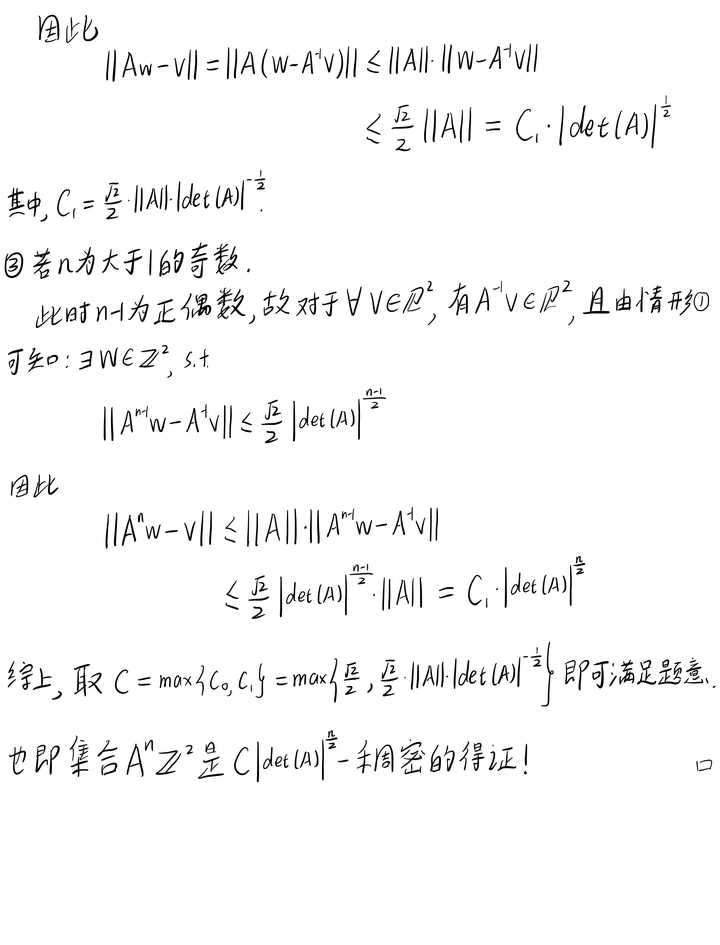 因此
||Aw-v|| = ||A(w-A⁻¹v)|| ≤ ||A||·||w-A⁻¹v||
≤ √2/2 ||A|| = C₁·|det(A)|^(1/2)
其中, C₁ = √2/2·||A||·|det(A)|^(-1/2).
③若n为大于1的奇数.
此时n-1为正偶数,故对于∀v∈ℝ², 有A⁻¹v∈ℝ², 且由情形①
可知:∃w∈ℤ², s.t.
||Aⁿ⁻¹w-A⁻¹v|| ≤ √2/2 |det(A)|^((n-1)/2)
因此
||Aⁿw-v|| ≤ ||A||·||Aⁿ⁻¹w-A⁻¹v||
≤ √2/2 |det(A)|^((n-1)/2)·||A|| = C₁·|det(A)|^(n/2)
综上, 取 C = max{C₀, C₁} = max{√2/2, √2/2·||A||·|det(A)|^(-1/2)} 即可满足题意.
也即集合Aⁿℤ²是C|det(A)|^(n/2)-稠密的得证! □